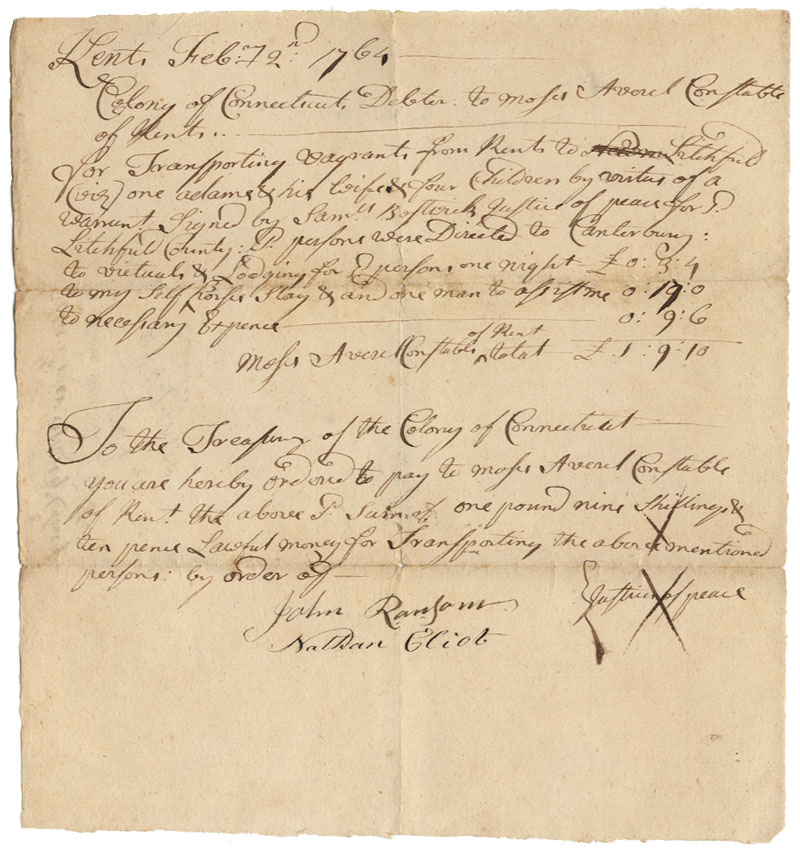 Kent Feb:ry 2nd: 1764
Colony of Connecticut, Debter to Moses Averel Constable
of Kent..
for Transporting vagrants from Kent to Litchfield
(viz) one adams & his wife & four Children by virtue of a
Warrant Signed by Saml: Bostwick Justice of peace for
Litchfield County: persons were Directed to Canterbury:
to victuals & Lodging for persons one night £0: 3: 4
to my Self horse Hay & and one man to assist me 0: 17: 0
to necessary Expence 0: 9: 6
Moses Averel Constable of Kent total £ 1: 9: 10
To the Treasury of the Colony of Connecticut
you are hereby ordered to pay to Moses Averel Constable
of Kent the above Sum of one pound nine Shillings &
ten pence Lawful money for Transporting the above mentioned
persons: by order of
John Ransom
Nathan Eliot
Justices of peace